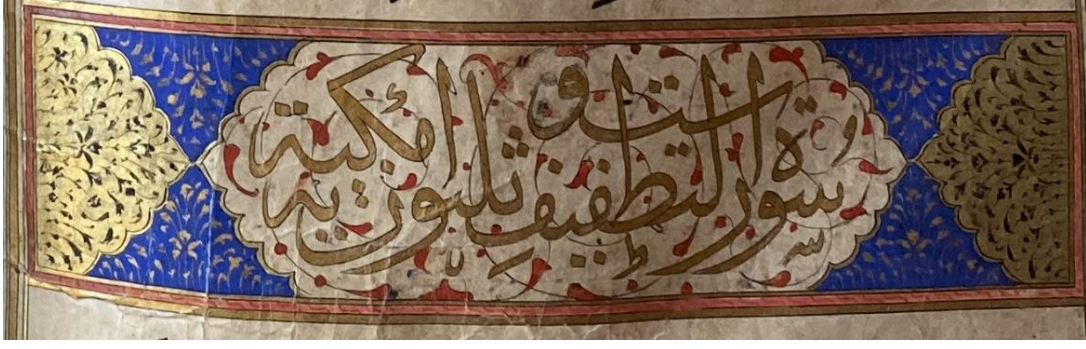 سورة التطفيف ست و ثلثون اية مكية